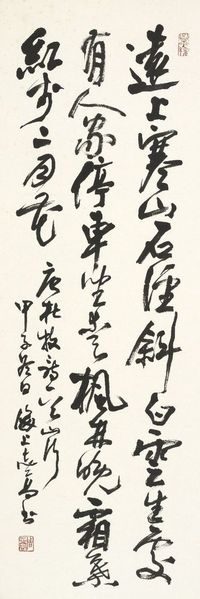 遠上寒山石徑斜白雲生處
有人家停車坐愛楓林晚霜葉
紅于二月花
唐杜牧詩山行
甲子冬日海上